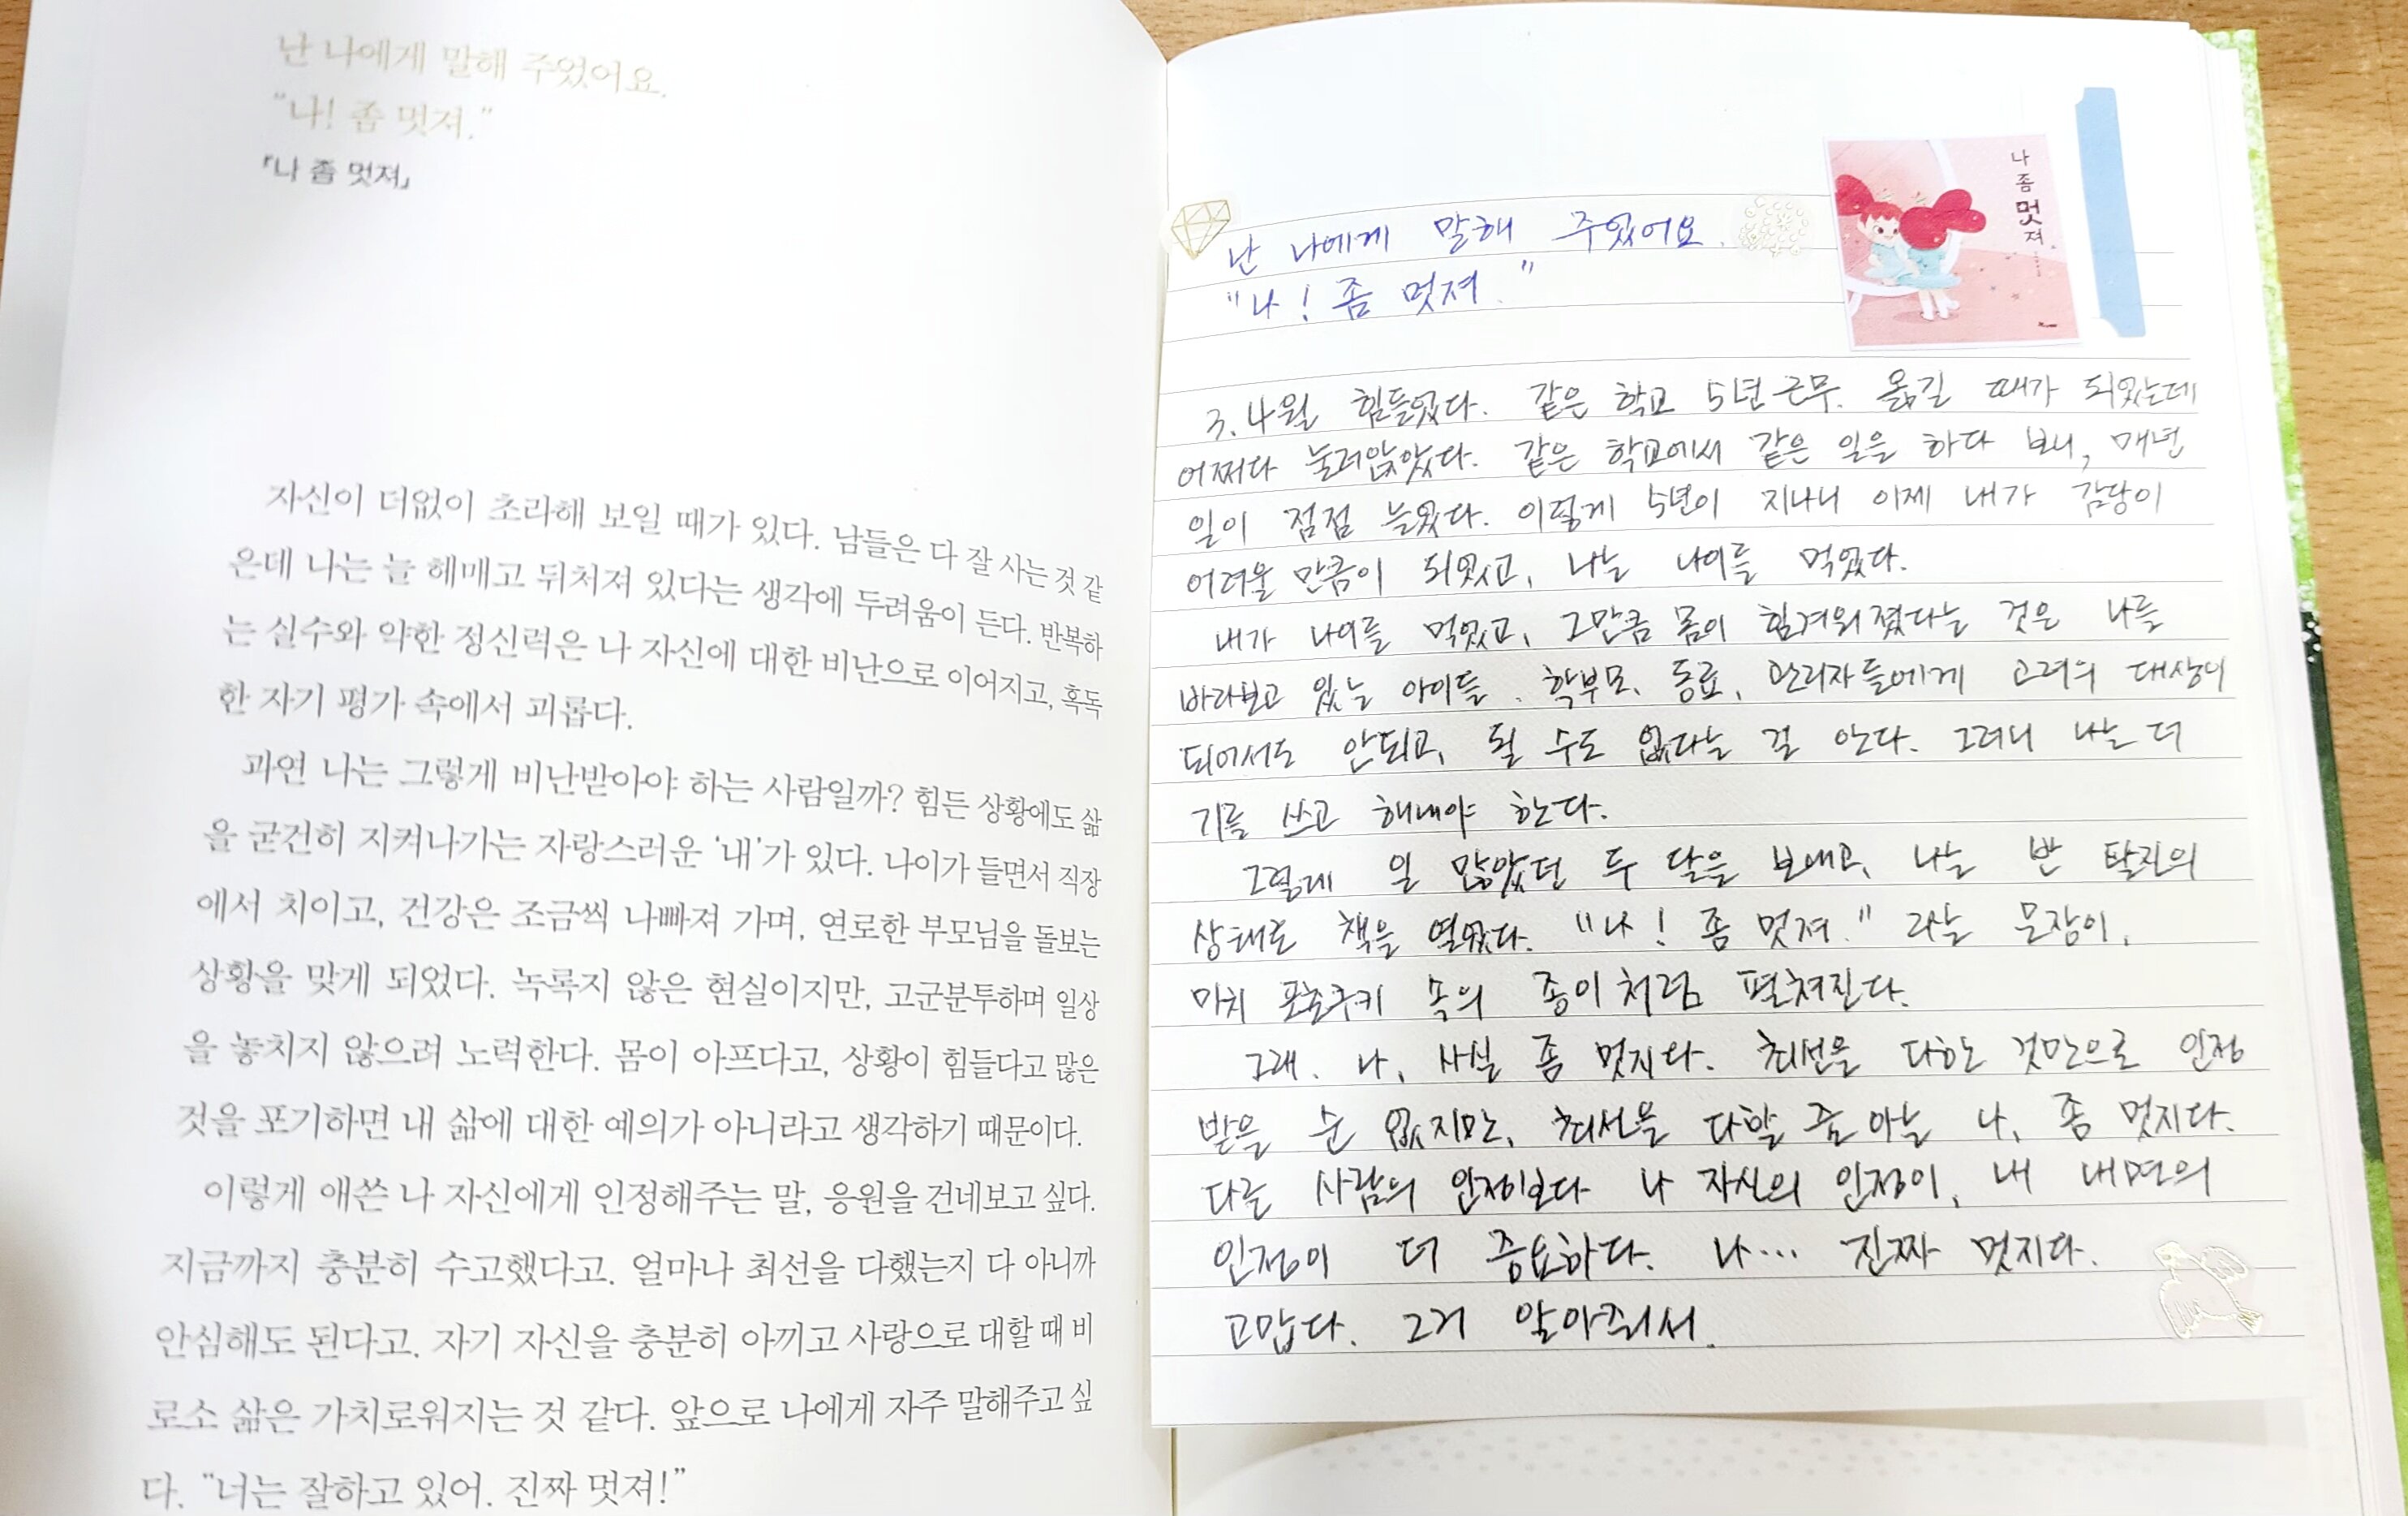 난 나에게 말해 주었어요.
"나! 좀 멋져."
『나 좀 멋져』
자신이 더없이 초라해 보일 때가 있다. 남들은 다 잘 사는 것 같
은데 나는 늘 헤매고 뒤처져 있다는 생각에 두려움이 든다. 반복하
는 실수와 약한 정신력은 나 자신에 대한 비난으로 이어지고, 혹독
한 자기 평가 속에서 괴롭다.
과연 나는 그렇게 비난받아야 하는 사람일까? 힘든 상황에도 삶
을 굳건히 지켜나가는 자랑스러운 '내'가 있다. 나이가 들면서 직장
에서 치이고, 건강은 조금씩 나빠져 가며, 연로한 부모님을 돌보는
상황을 맞게 되었다. 녹록지 않은 현실이지만, 고군분투하며 일상
을 놓치지 않으려 노력한다. 몸이 아프다고, 상황이 힘들다고 많은
것을 포기하면 내 삶에 대한 예의가 아니라고 생각하기 때문이다.
이렇게 애쓴 나 자신에게 인정해주는 말, 응원을 건네보고 싶다.
지금까지 충분히 수고했다고. 얼마나 최선을 다했는지 다 아니까
안심해도 된다고. 자기 자신을 충분히 아끼고 사랑으로 대할 때 비
로소 삶은 가치로워지는 것 같다. 앞으로 나에게 자주 말해주고 싶
다. "너는 잘하고 있어. 진짜 멋져!"
난 나에게 말해 주었어요.
"나! 좀 멋져."
나 좀 멋져
3.4월 힘들었다. 같은 학교 5년 근무. 옮길 때가 되었는데
어쩌다 눌러앉았다. 같은 학교에서 같은 일을 하다 보니, 매년
일이 점점 늘었다. 이렇게 5년이 지나니 이제 내가 감당이
어려울 만큼이 되었고, 나는 나이를 먹었다.
내가 나이를 먹었고, 그만큼 몸이 힘겨워졌다는 것은 나를
바라보고 있는 아이들, 학부모, 동료, 관리자들에게 고려의 대상이
되어서도 안되고, 될 수도 없다는 걸 안다. 그러니 나는 더
기를 쓰고 해내야 한다.
그렇게 일 많았던 두 달을 보내고, 나는 반 탈진의
상태로 책을 열었다. "나! 좀 멋져." 라는 문장이,
마치 포춘쿠키 속의 종이처럼 펼쳐진다.
그래. 나, 사실 좀 멋지다. 최선을 다하는 것만으로 인정
받을 순 없지만, 최선을 다할 줄 아는 나, 좀 멋지다.
다른 사람의 인정보다 나 자신의 인정이, 내 내면의
인정이 더 중요하다. 나… 진짜 멋지다.
고맙다. 그거 알아줘서.